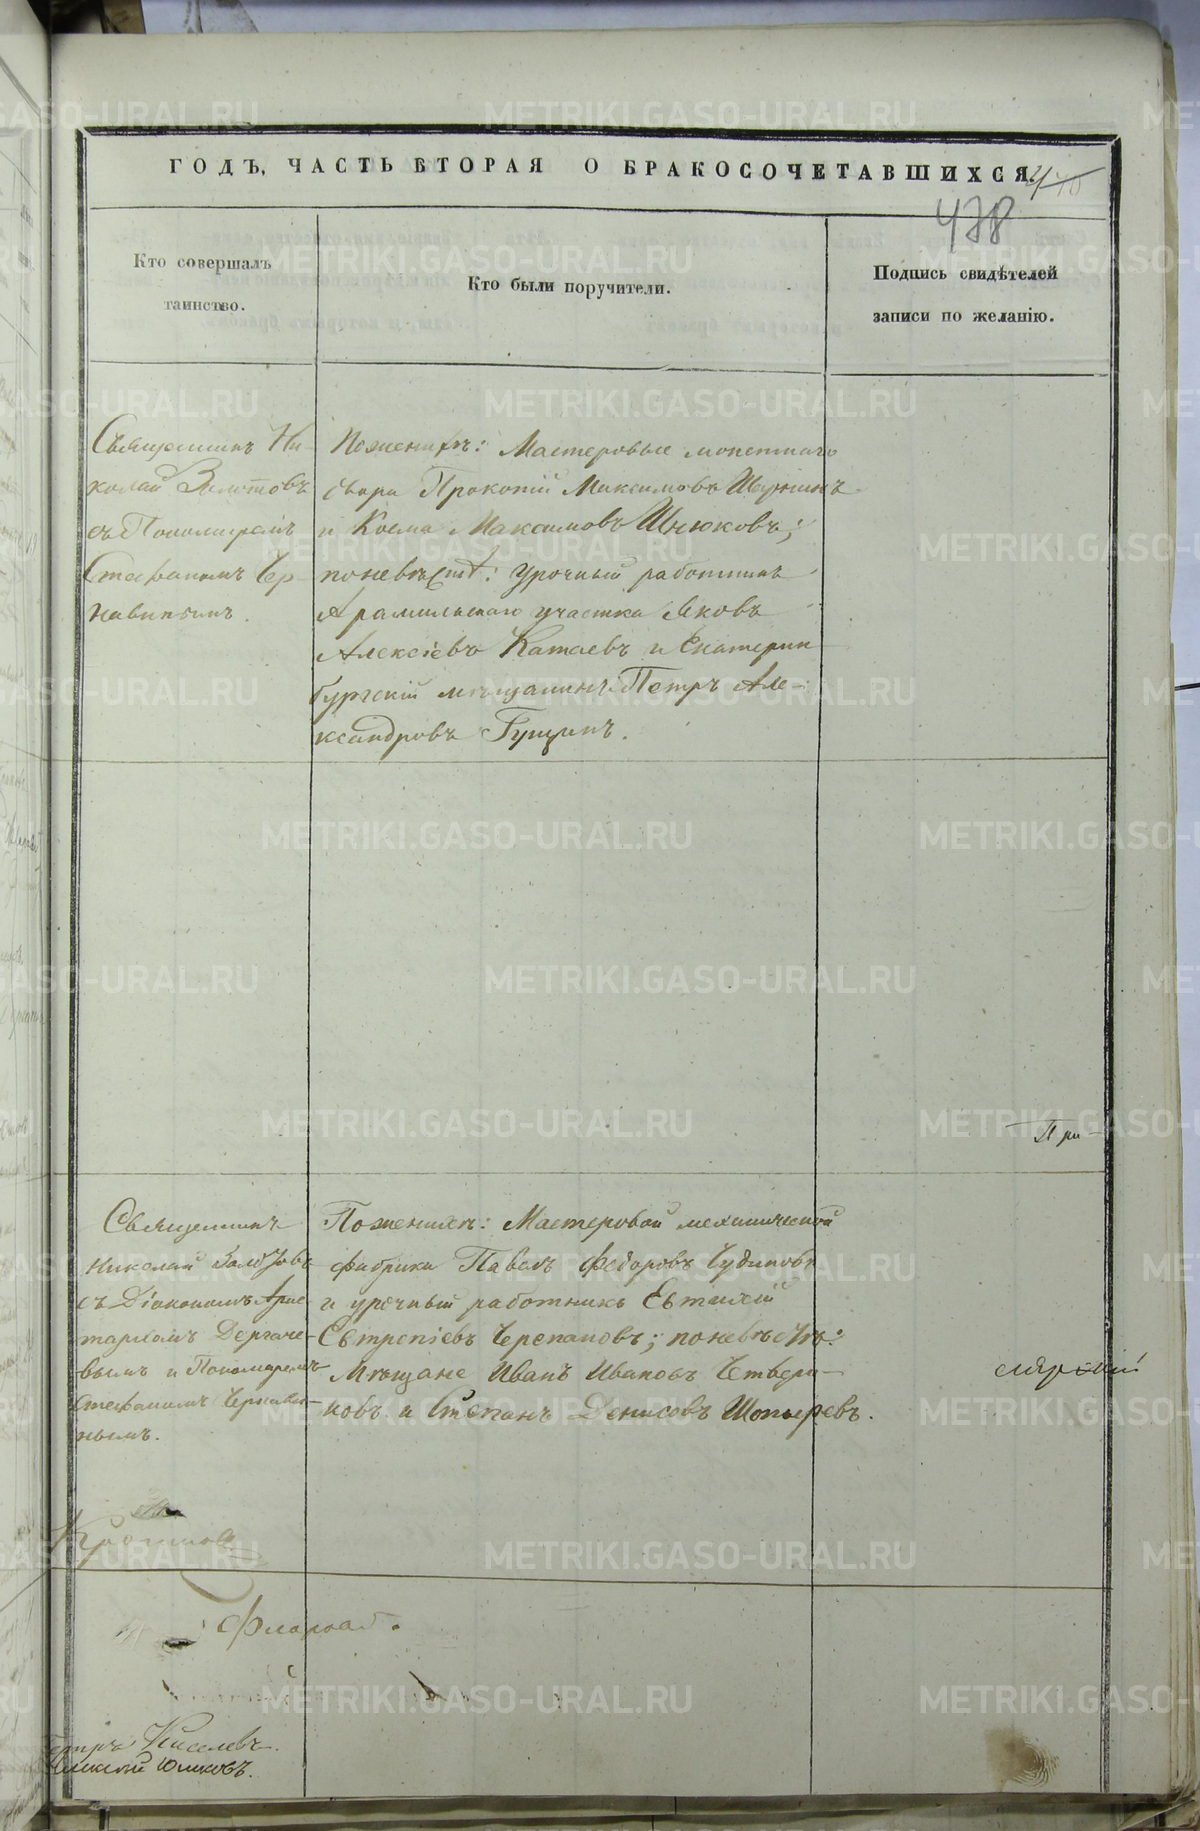 ГОДЪ, ЧАСТЬ ВТОРАЯ О БРАКОСОЧЕТАВШИХСЯ.
478
Кто совершалъ
таинство.
Кто были поручители.
Подпись свидѣтелей
записи по желанію.
Священникъ Ни-
колай Золотовъ
съ Пономаремъ
Стефаномъ Чер-
навинымъ.
Поженихѣ: Мастеровые монетнаго
двора Прокопій Максимовъ
и Косма Максимовъ Шнюковъ;
поневѣстѣ: урочный работникъ
Арамильскаго участка Яковъ
Алексѣевъ Катаевъ и Екатерин-
бургскій мѣщанинъ Петръ Але-
ксандровъ Гущинъ.
При-
Священникъ
Николай Золотовъ
съ Діакономъ Арис-
тархомъ Дергаче-
вымъ и Пономаремъ
Стефаномъ Чернави-
нымъ.
Поженихѣ: Мастеровой механической
фабрики Павелъ Федоровъ Чудиновъ
и урочный работникъ Евтихій
Евтропіевъ Черепановъ; поневѣстѣ:
Мѣщане Иванъ Ивановъ Четвери-
ковъ и Степанъ Денисовъ Шопыревъ.
Петръ Киселевъ.
METRIKI.GASO-URAL.RU